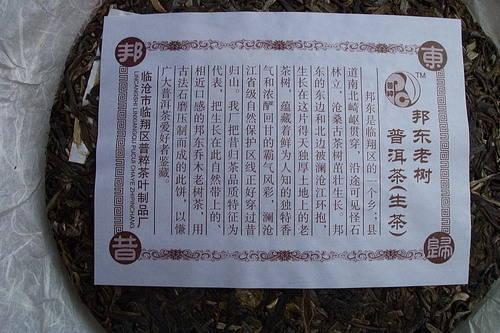 東
歸
邦
昔
TM
邦东老树
普洱茶(生茶)
邦东是临翔区的一个乡;县
道南北崎岖贯穿,沿途可见怪石
林立,沧桑古茶树茁壮生长。邦
东的东边和北边被澜沧江环抱,
生长在这片得天独厚土地上的老
茶树,蕴藏着鲜为人知的独特香
气和浓酽回甘的霸气风彩,澜沧
江省级自然保护区线正好穿过昔
归山,我厂把昔归茶品质特征为
代表,把生长在此自然带上的、
相近口感的邦东乔木老树茶,用
古法石磨压制而成的此饼,以慊
广大普洱茶爱好者鉴藏。
临沧市临翔区普粹茶叶制品厂
LINCANGSHI LINXIANGQU PUCUI CHAYE ZHIPINCHANG